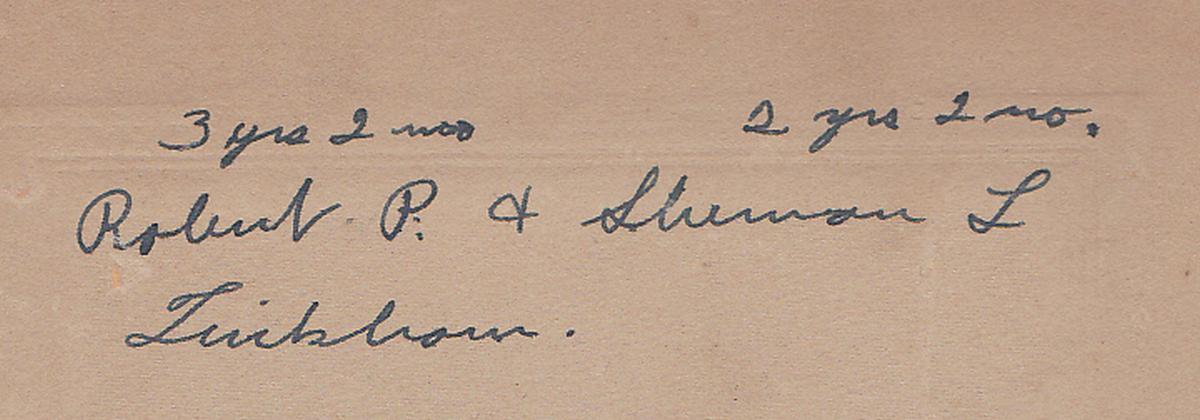 3 yrs 2 mo 2 yrs 2 mo.
Robert P. & Sherman L
Tinkham.